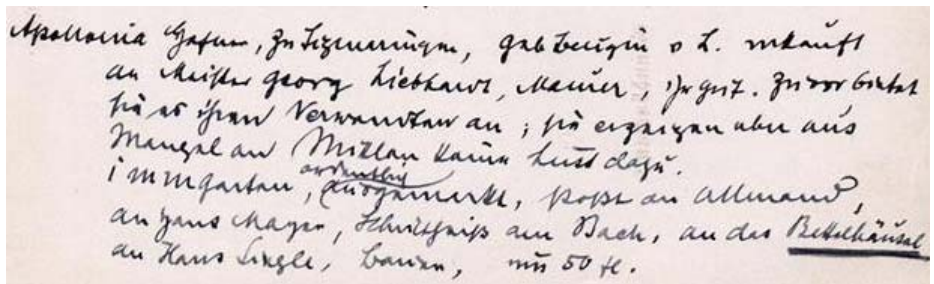 Apollonia Hafner, zu Sigmaringen, geb. v L. verkauft
an Meister Georg Liebhardt, Maurer, ihr gut. Zuvor bietet
sie es ihren Verwandten an; sie erzeigen aber aus
Mangel an Mittlen keine Lust dazu.
immgarten, ordentlich ausgemerkt, stoßt an Allmand,
an Hans Mayer, Schultheiß am Bach, an das Bettelhäusel
an Hans Single, Bauern, um 50 fl.